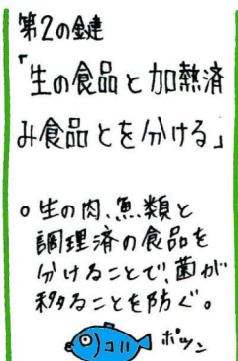 第2の鍵
「生の食品と加熱済
み食品とを分ける」
○生の肉、魚類と
調理済の食品を
分けることで、菌が
移ることを防ぐ。
ポツン